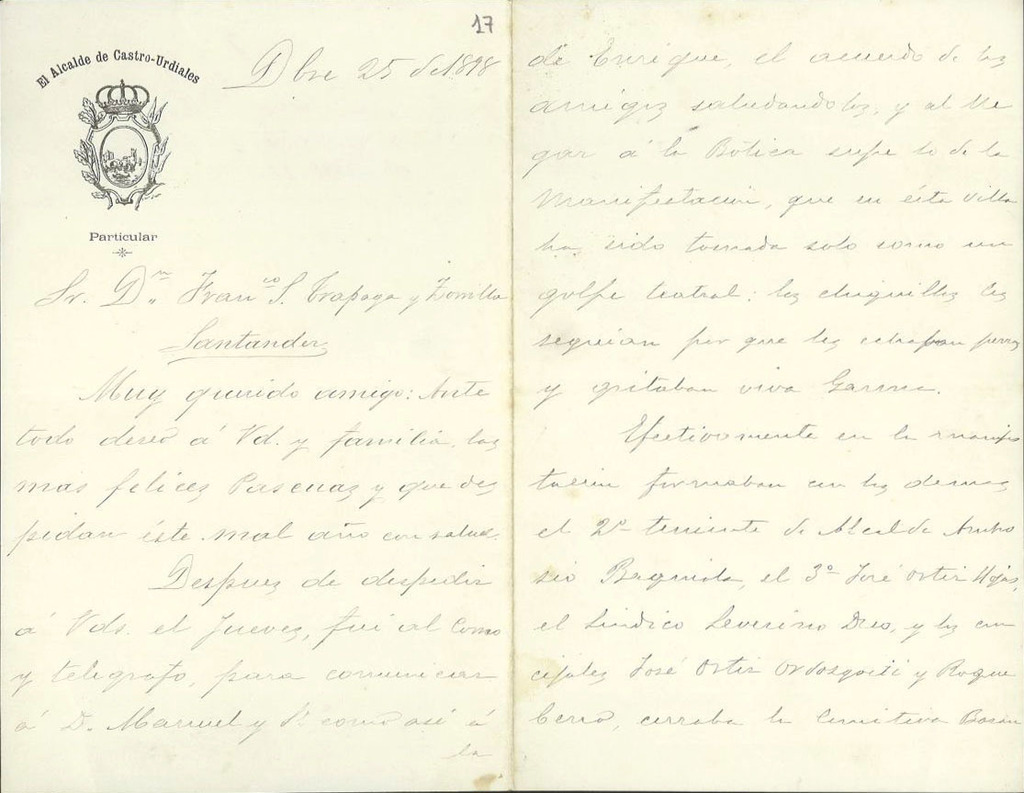 17
El Alcalde de Castro-Urdiales
Particular
Dbre 25 de 1898
Sr. Dn. Franco. S. Trapaga y Zorrilla
Santander
Muy querido amigo: Ante
todo deseo á Vd. y familia las
mas felices Pascuas y que des
pidan éste mal año con salud.
Despues de despedir
á Vds. el Jueves, fui al Correo
y telegrafo, para comunicar
á D. Manuel y como asi á
la
de Enrique, el acuerdo de los
amigos saludandolos, y al lle
gar á la Bótica supe lo de la
Manifestacion, que en ésta villa
ha sido tomada solo como un
golpe teatral; los chiquillos les
seguian por que les echaban perras
y gritaban viva
Efectivamente en la manifes
tacion formaban con los demas
el 2º teniente de Alcalde Ambro
sio el 3º José Ortiz
el Sindico Severino y los con
cejales José Ortiz y Roque
cerraba la Comitiva